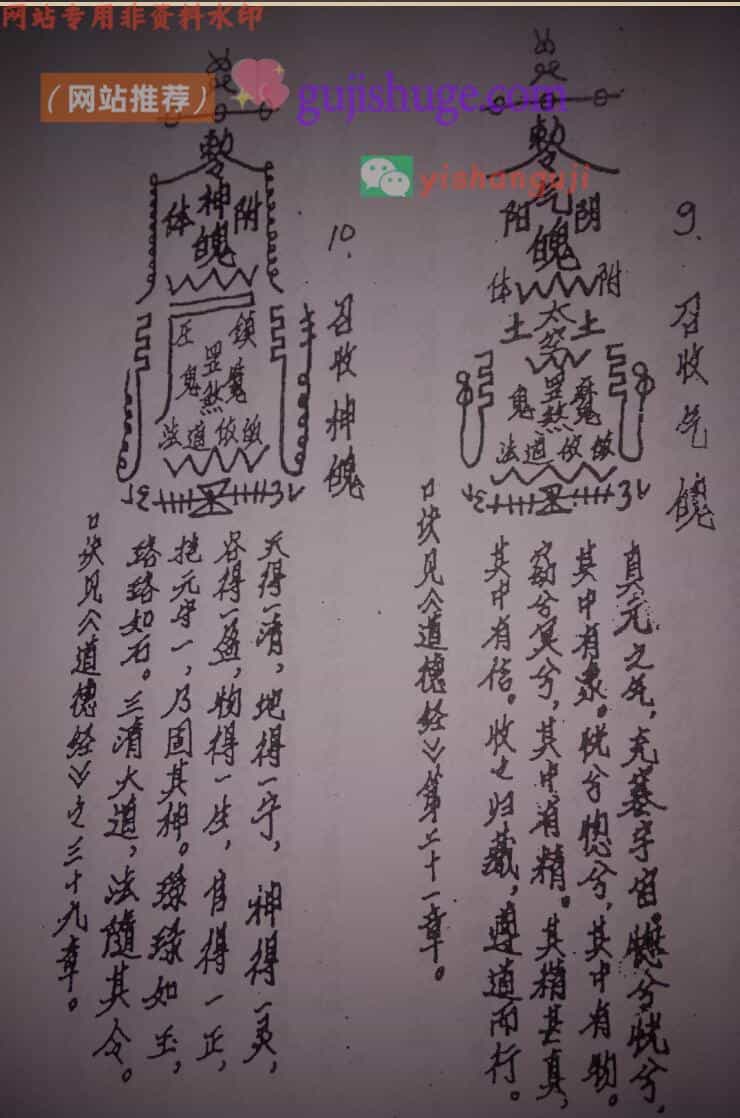 网站专用非资料水印
(网站推荐)
gujishuge.com
yishanguji
9.
召收气魄
敕令
气魄
阳
阴
体
附
太空
土
土
鬼
罡煞
法道
真元之气，充塞宇宙。惚兮恍兮，
其中有象。恍兮惚兮，其中有物。
窈兮冥兮，其中有精。其精甚真，
其中有信。收之归藏，遵道而行。
口诀见《道德经》第二十一章。
10.
召收神魄
敕令
神魄
体
附
压
鎮
鬼
罡煞
魔
法道
天得一清，地得一宁，神得一灵，
谷得一盈，物得一生，官得一正，
抱元守一，乃固其神。琭琭如玉，
珞珞如石。三清大道，法随其令。
口诀见《道德经》之三十九章。